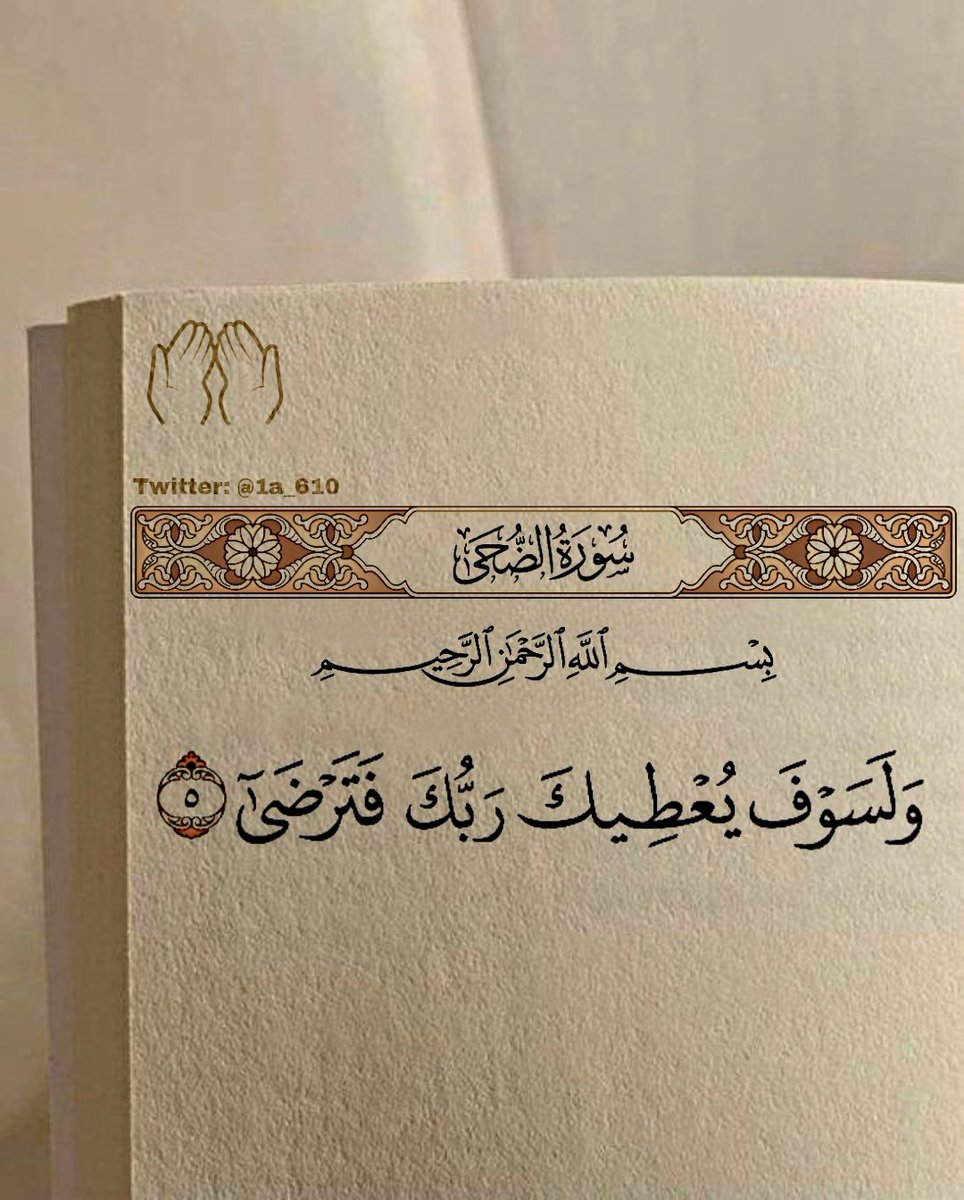 Twitter: @1a_610
سُورَةُ الضُّحَىٰ
بِسْمِ ٱللَّهِ ٱلرَّحْمَٰنِ ٱلرَّحِيمِ
وَلَسَوْفَ يُعْطِيكَ رَبُّكَ فَتَرْضَىٰٓ ٥